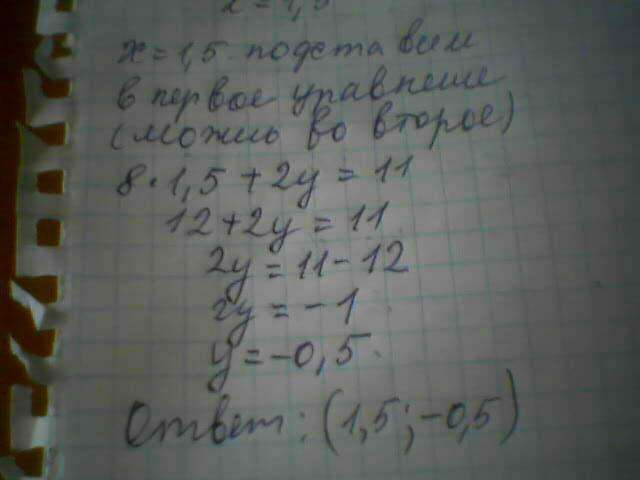 x = 1,5
x = 1,5 подставим
в первое уравнение
(можно во второе)
8 · 1,5 + 2y = 11
12 + 2y = 11
2y = 11 - 12
2y = -1
y = -0,5.
Ответ: (1,5; -0,5)